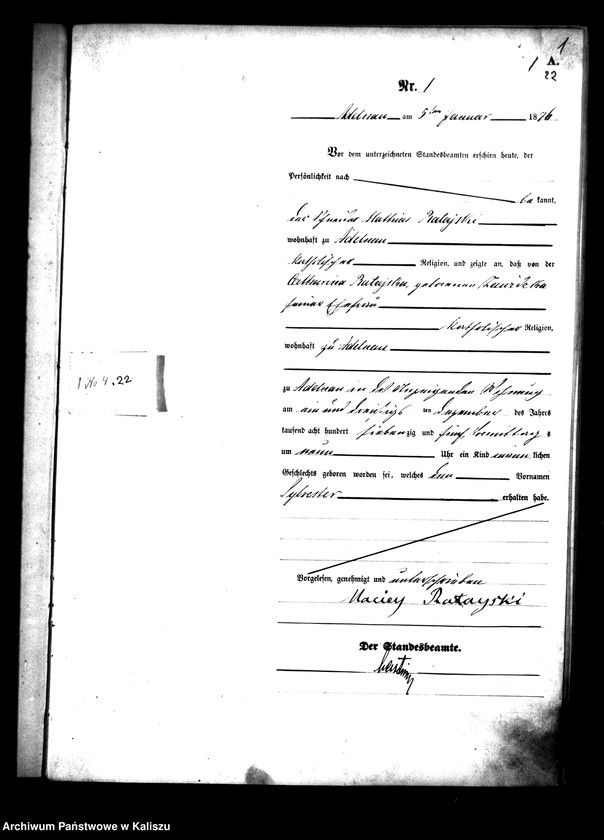 1
1 A.
22
Nr. 1
Adelnau am 5ten Januar 1876
Vor dem unterzeichneten Standesbeamten erschien heute, der
Persönlichkeit nach
bekannt,
der Mathias Ratajski
wohnhaft zu Adelnau
katholischer Religion, und zeigte an, daß von der
Catharina Ratajska, geborenen
seiner Ehefrau
katholischer Religion,
wohnhaft zu Adelnau
1 No 4.22
zu Adelnau in des Anzeigenden Wohnung
am ein und dreißigs ten Dezember des Jahres
tausend acht hundert siebenzig und fünf Vormittags
um neun Uhr ein Kind männlichen
Geschlechts geboren worden sei, welches den Vornamen
Sylvester erhalten habe.
Vorgelesen, genehmigt und unterschrieben
Maciey Ratayski
Der Standesbeamte.
Archiwum Państwowe w Kaliszu